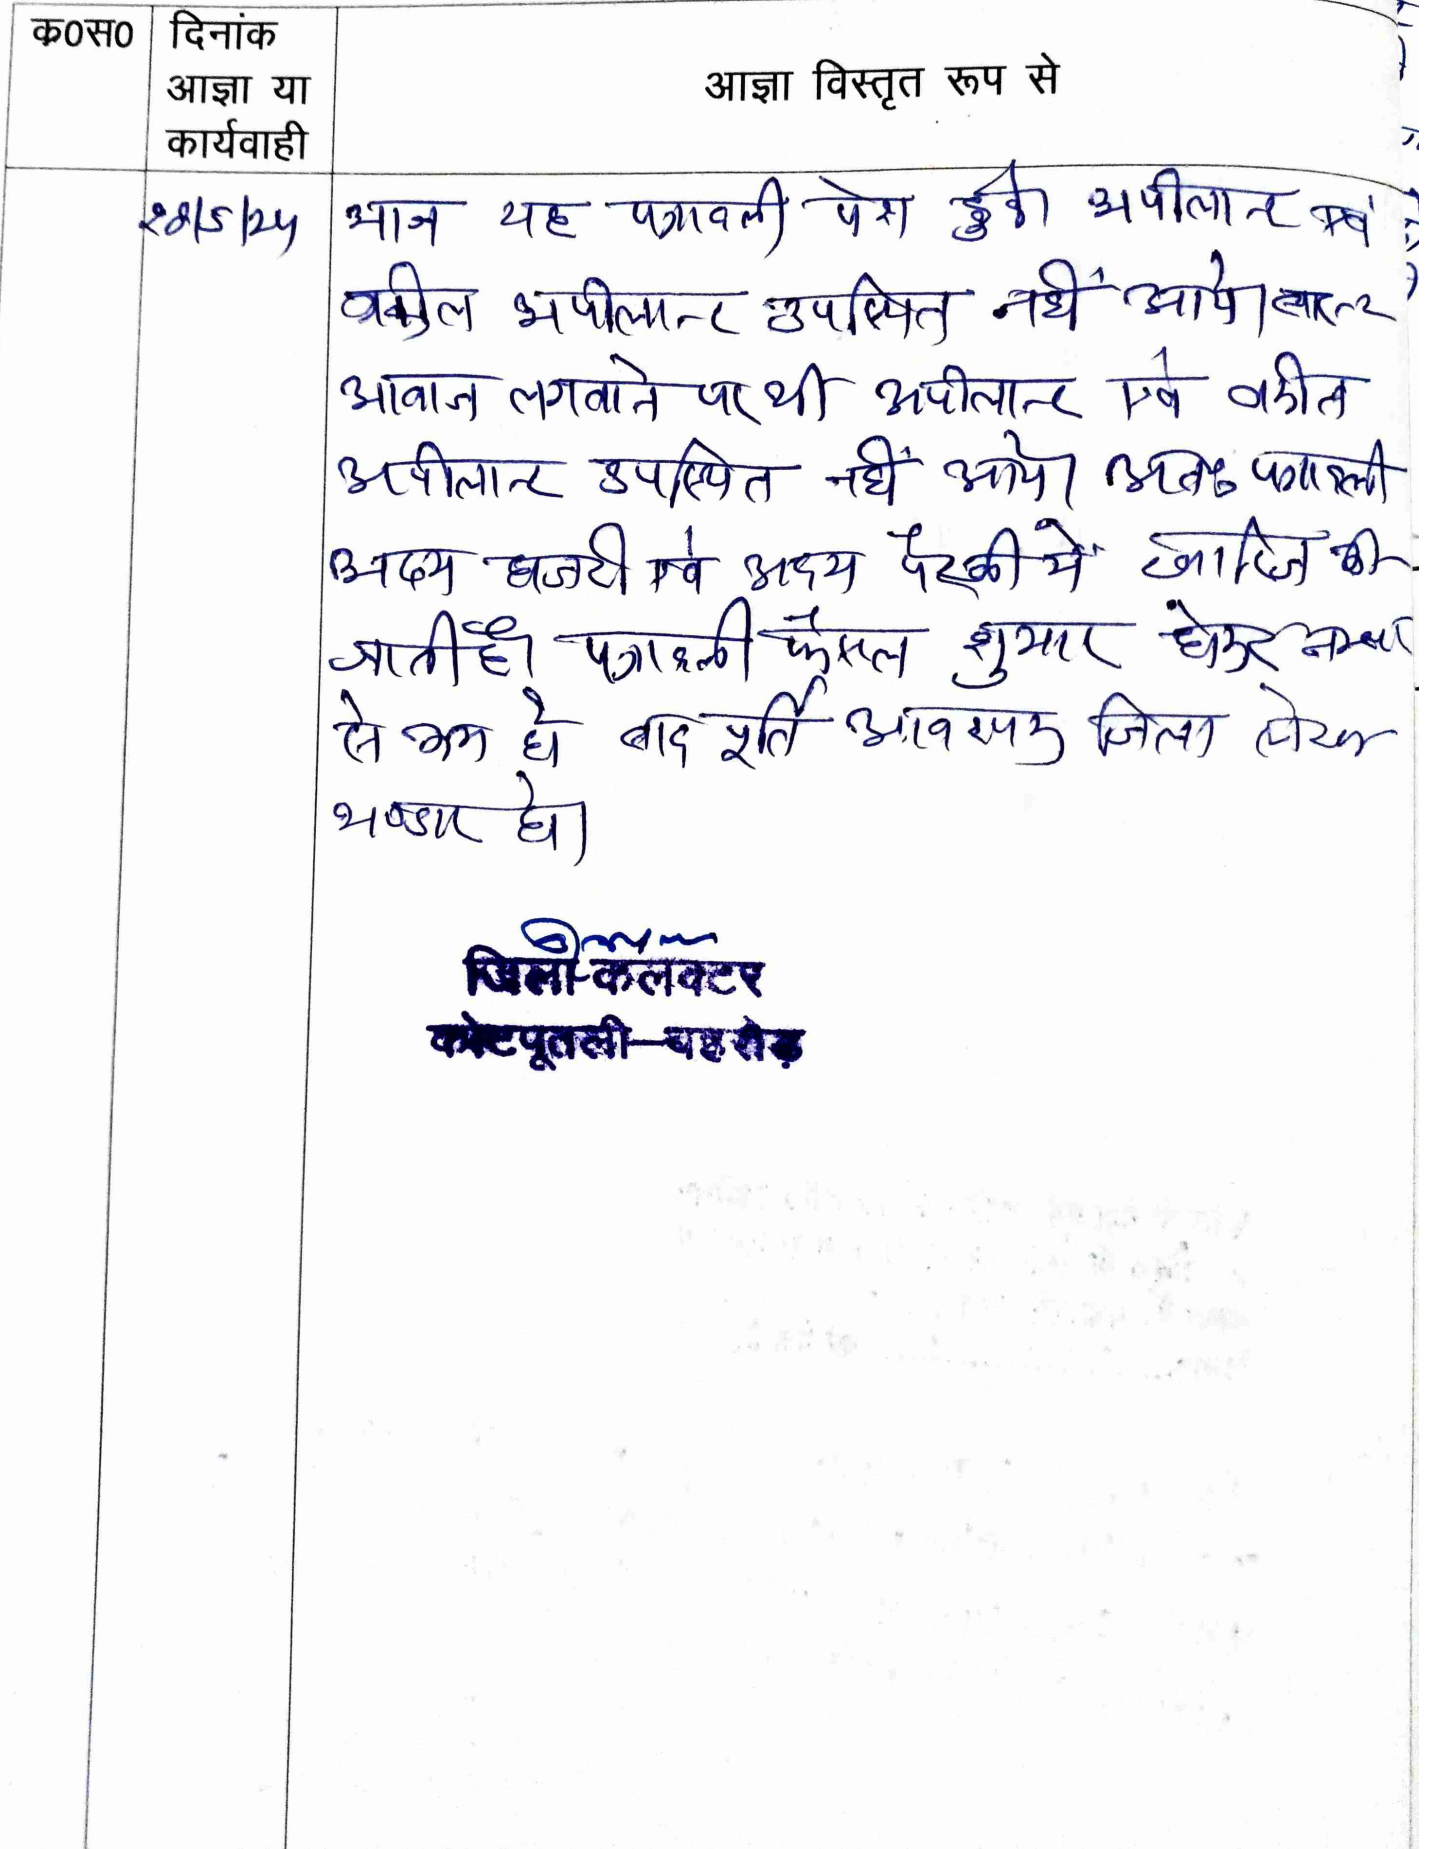 क0स0 दिनांक
आज्ञा या
कार्यवाही
आज्ञा विस्तृत रूप से
28/5/25 आज यह पत्रावली पेश हुई। अपीलान्ट एवं
वकील अपीलान्ट उपस्थित नहीं आये।
आवाज लगवाने पर भी अपीलान्ट एवं वकील
अपीलान्ट उपस्थित नहीं आये। अतः पत्रावली
अदम हाजरी एवं अदम पैरवी में खारिज की
जाती है। पत्रावली फैसल शुमार होकर नम्बर
से कम हो बाद पूर्ति आवश्यक जिला
भण्डार हो।
जिला कलक्टर
कोटपूतली-बहरोड़